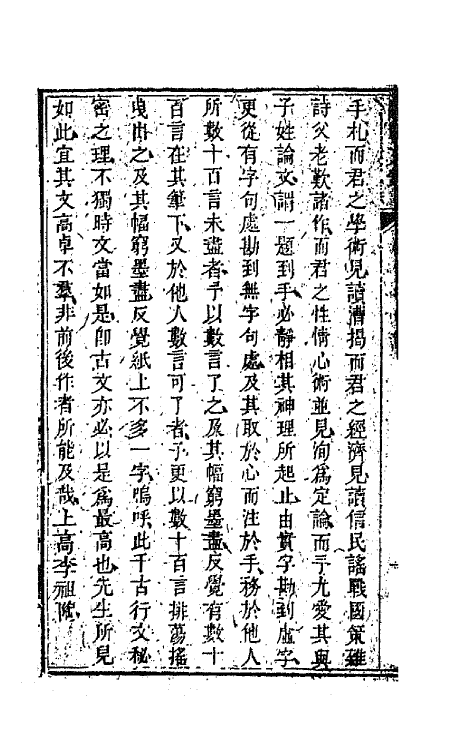 手札而君之學術見讀漕揭而君之經濟見讀信民謠戰國策雜
詩父老歎諸作而君之性情心術並見洵爲定論而予尤愛其與
子姓論文謂一題到手必靜相其神理所起止由實字勘到虛字
更從有字句處勘到無字句處及其取於心而注於手務於他人
所數十百言未盡者予以數言了之及其幅窮墨盡反覺有數十
百言在其筆下又於他人數言可了者予更以數十百言排蕩搖
曳出之及其幅窮墨盡反覺紙上不多一字嗚呼此千古行文秘
密之理不獨時文當如是卽古文亦必以是爲最高也先生所見
如此宜其文高卓不羣非前後作者所能及哉上高李祖陶